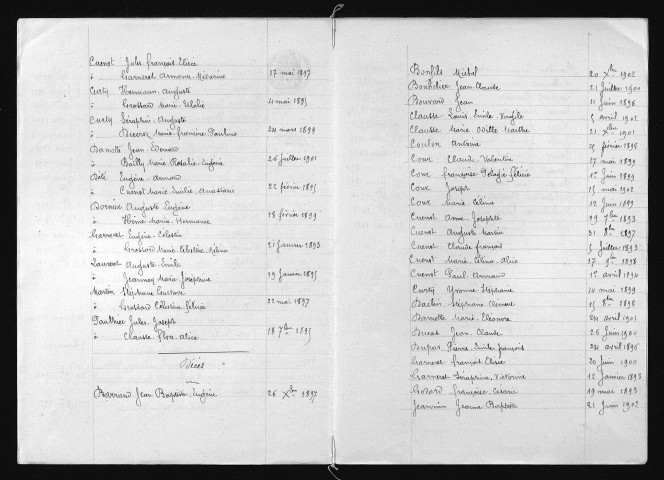 Cuenot Jules François Elisée
à Garneret Armance Médarine 17 mai 1897
Curty Hermann Auguste
à Grossard Marie Eulalie 4 mai 1895
Curty Séraphin Auguste
à Ducrer Marie Francine Pauline 24 mars 1899
Damotte Jean Edouard
à Bailly Marie Rosalie Eugénie 26 juillet 1901
Dôle Eugène Armand
à Cuenot Marie Emilie Anastasie 22 février 1895
Dornier Auguste Eugène
à Hême Marie Hermance 18 février 1899
Garneret Eugène Célestin
à Grossard Marie Célestine Célina 21 janvier 1893
Laurent Auguste Emile
à Jeanney Marie Joséphine 19 janvier 1895
Martin Stéphane Gustave
à Grossard Célestine Félicie 22 mai 1897
Pauthier Jules Joseph
à Clausse Flore Alice 18 7bre 1895
Décès
Barrand Jean Baptiste Eugène 26 Xbre 1897
Bonfils Michel 20 Xbre 1902
Bonhotier Jean Claude 21 juillet 1900
Bouvard Jean 11 juin 1896
Clausse Louis Emile Virgile 5 avril 1902
Clausse Marie Odille Marthe 21 Xbre 1901
Coulon Antoine 25 février 1898
Cour Claude Valentin 27 mai 1899
Cour Françoise Pélagie Félicie 1er juin 1899
Cour Joseph 15 mai 1902
Cour Marie Célina 12 juin 1899
Cuenot Anne Josephte 29 7bre 1893
Cuenot Auguste Martin 31 8bre 1897
Cuenot Claude François 5 juillet 1893
Cuenot Marie Célina Alice 17 9bre 1898
Cuenot Paul Armand 1er avril 1894
Curty Yvonne Stéphanie 14 mai 1899
Dachin Stéphane Clément 15 8bre 1898
Damotte Marie Eléonore 24 avril 1901
Ducat Jean Claude 26 juin 1900
Dupas Pierre Emile François 24 avril 1896
Garneret François Elisée 20 juin 1900
Garneret Séraphine Victorine 12 janvier 1893
Godard Françoise Césarie 19 mai 1893
Jeannin Jeanne Baptiste 21 juin 1902